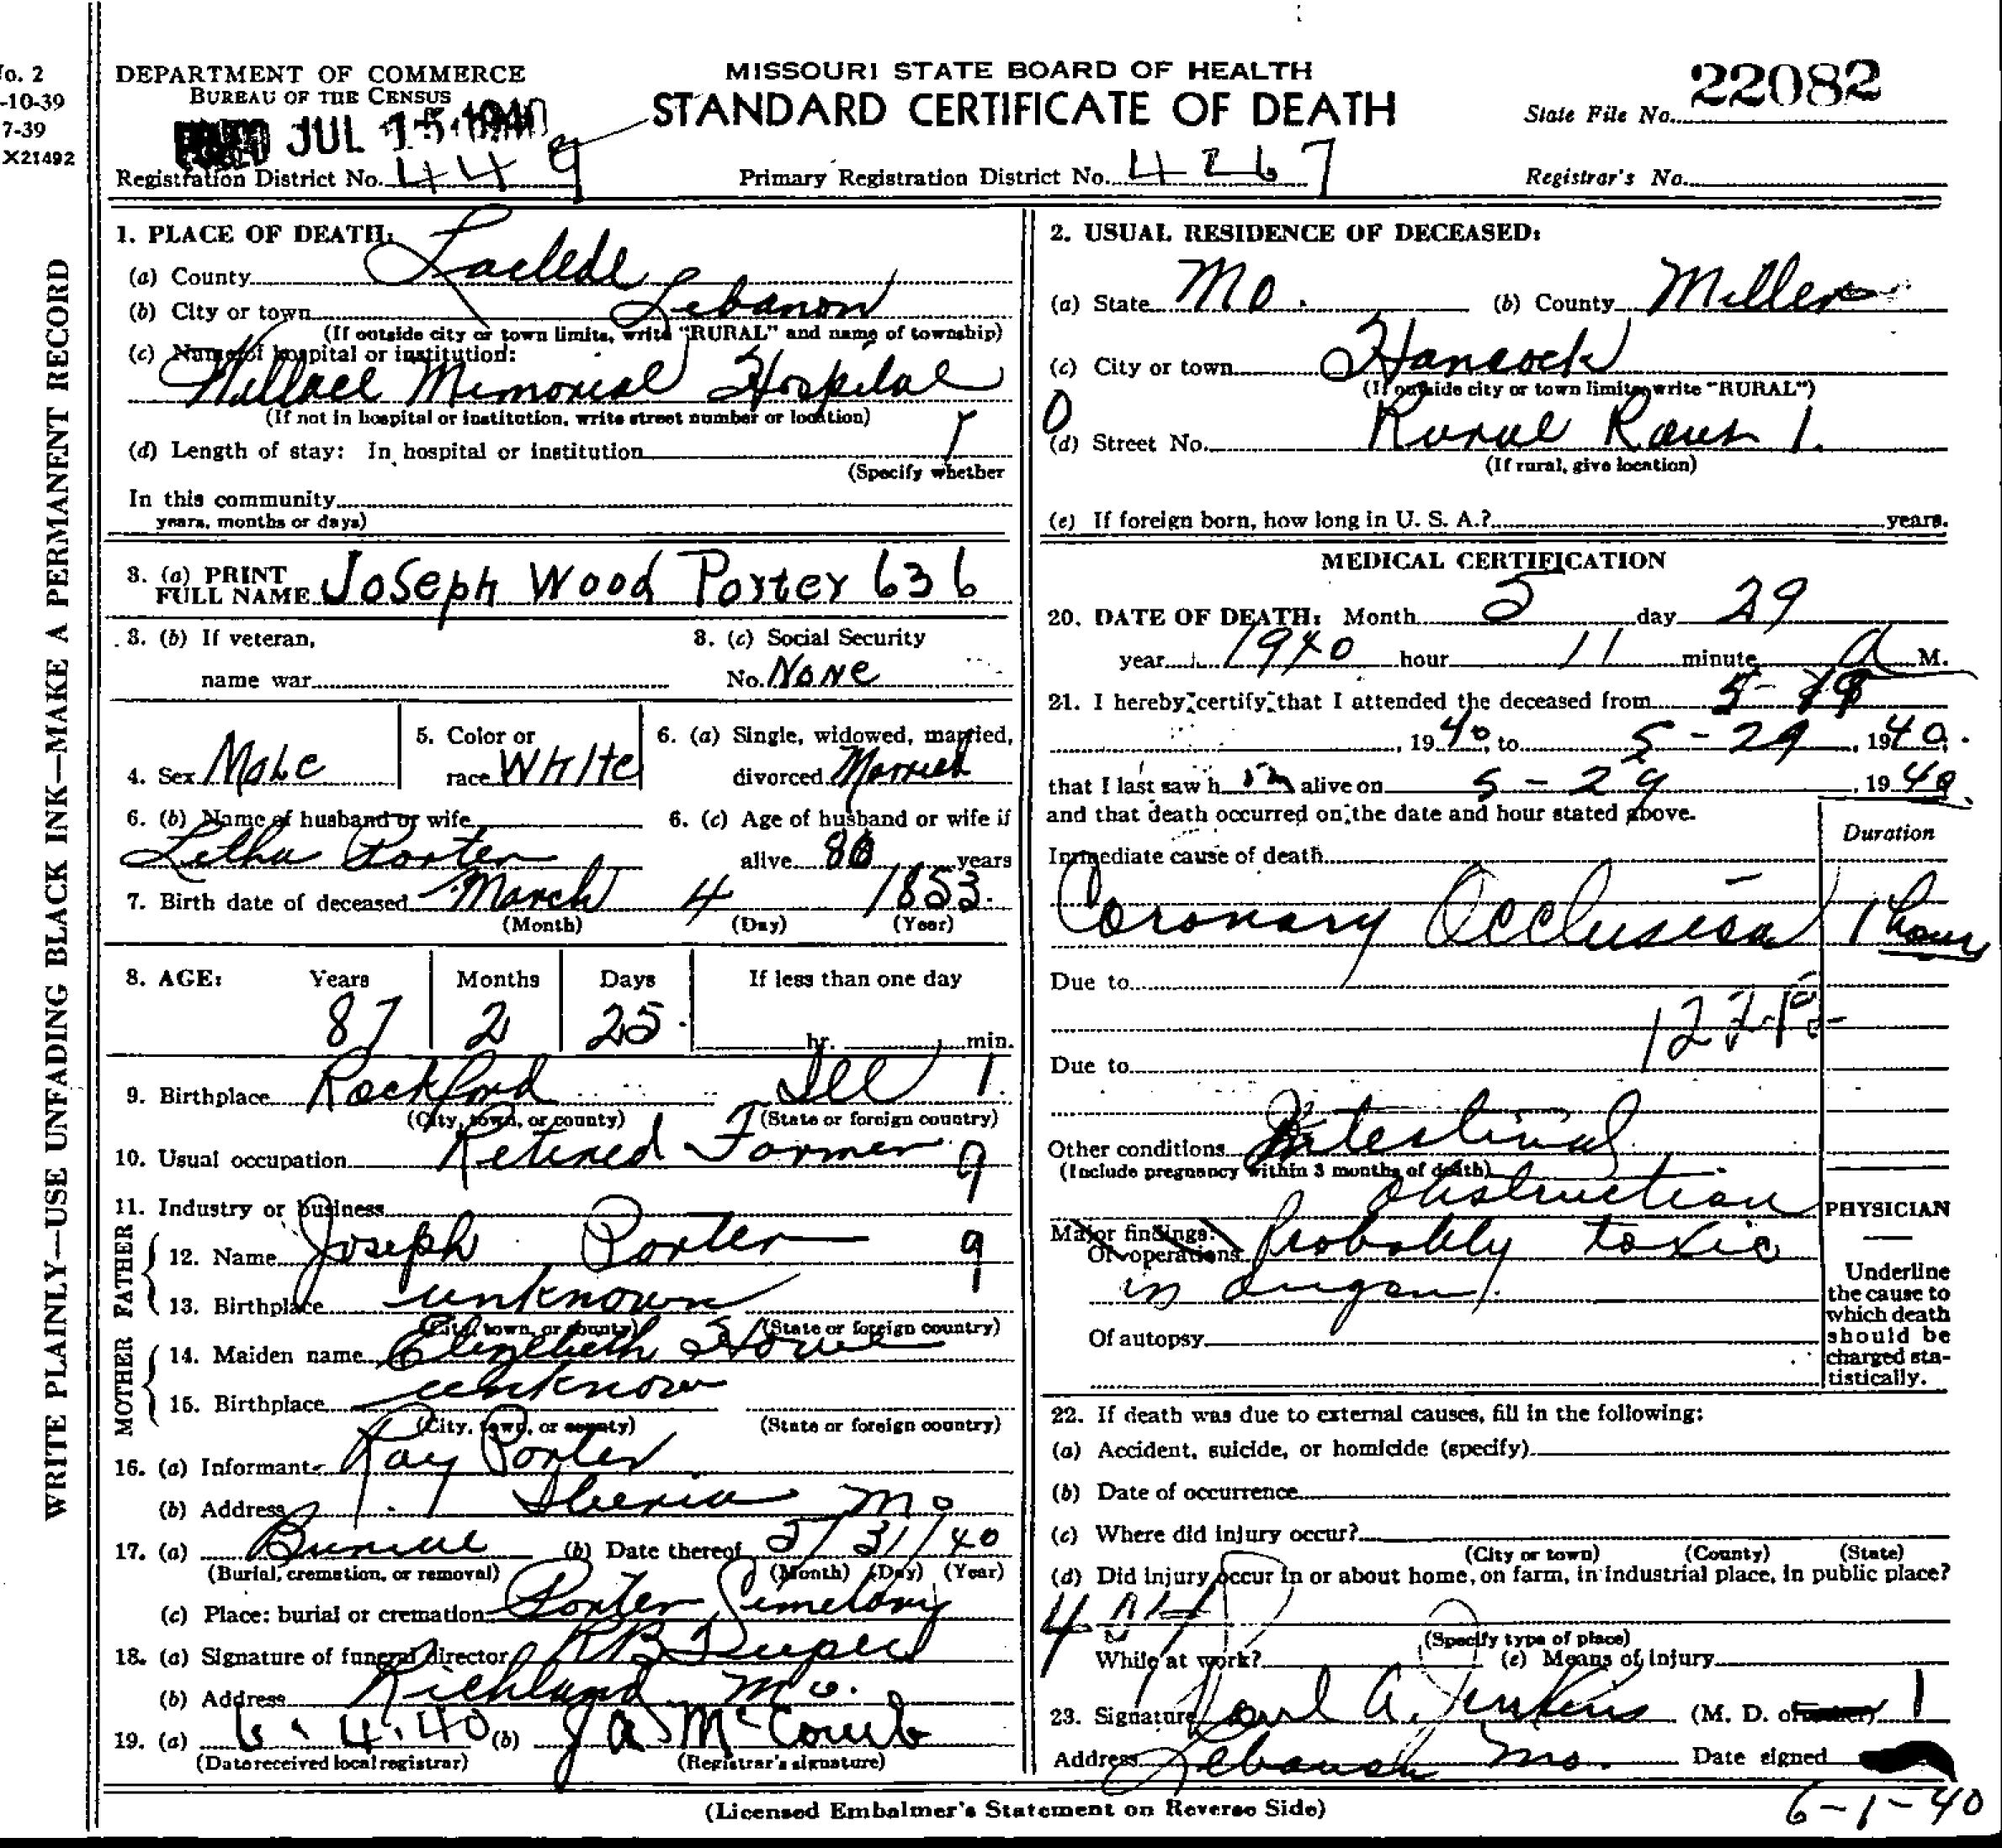 No. 2
-10-39
7-39
X21492
WRITE PLAINLY—USE UNFADING BLACK INK—MAKE A PERMANENT RECORD
DEPARTMENT OF COMMERCE
BUREAU OF THE CENSUS
JUL 15 1940
MISSOURI STATE BOARD OF HEALTH
STANDARD CERTIFICATE OF DEATH
State File No. 22082
Registration District No. 449
Primary Registration District No. 4267
Registrar's No.
1. PLACE OF DEATH:
(a) County Laclede
(b) City or town Lebanon
(If outside city or town limits, write "RURAL" and name of township)
(c) Name of hospital or institution:
Wallace Memorial Hospital
(If not in hospital or institution, write street number or location)
(d) Length of stay: In hospital or institution
(Specify whether
In this community
years, months or days)
3. (a) PRINT
FULL NAME Joseph Wood Porter 636
3. (b) If veteran,
name war
3. (c) Social Security
No. None
4. Sex Male
5. Color or
race White
6. (a) Single, widowed, married,
divorced Married
6. (b) Name of husband or wife
Letha Porter
6. (c) Age of husband or wife if
alive 80 years
7. Birth date of deceased March 4 1853.
(Month) (Day) (Year)
8. AGE: Years Months Days If less than one day
87 2 25 hr. min.
9. Birthplace Rockford Ill 1
(City, town, or county) (State or foreign country)
10. Usual occupation Retired Farmer 9
11. Industry or business
FATHER
12. Name Joseph Porter 9
13. Birthplace unknown
(City, town, or county) (State or foreign country)
MOTHER
14. Maiden name Elizebeth
15. Birthplace unknow
(City, town, or county) (State or foreign country)
16. (a) Informant Ray Porter
(b) Address Iberia Mo
17. (a) Burial (b) Date thereof 5/31/40
(Burial, cremation, or removal) (Month) (Day) (Year)
(c) Place: burial or cremation Porter Cemetary
18. (a) Signature of funeral director RB
(b) Address Richland Mo.
19. (a) 6.4.40 (b) J A McComb
(Date received local registrar) (Registrar's signature)
2. USUAL RESIDENCE OF DECEASED:
(a) State Mo. (b) County Miller
(c) City or town Hancock
(If outside city or town limits, write "RURAL")
0
(d) Street No. Rural Rout 1.
(If rural, give location)
(e) If foreign born, how long in U. S. A.? years.
MEDICAL CERTIFICATION
20. DATE OF DEATH: Month 5 day 29
year 1940 hour 11 minute a M.
21. I hereby certify that I attended the deceased from 5-
, 1940, to 5-29, 1940.
that I last saw him alive on 5-29, 1940
and that death occurred on the date and hour stated above.
Duration
Immediate cause of death
Coronary Occlusion 1 hour
Due to
Due to
Other conditions Intestinal
(Include pregnancy within 3 months of death)
obstruction
Major findings:
Of operations Probably toxic
in
Of autopsy
PHYSICIAN
Underline
the cause to
which death
should be
charged sta-
tistically.
22. If death was due to external causes, fill in the following:
(a) Accident, suicide, or homicide (specify)
(b) Date of occurrence
(c) Where did injury occur?
(City or town) (County) (State)
(d) Did injury occur in or about home, on farm, in industrial place, in public place?
(Specify type of place)
While at work? (e) Means of injury
23. Signature Carl A. Jenkins (M. D. or other) 1
Address Lebanon Mo. Date signed
6-1-40
(Licensed Embalmer's Statement on Reverse Side)